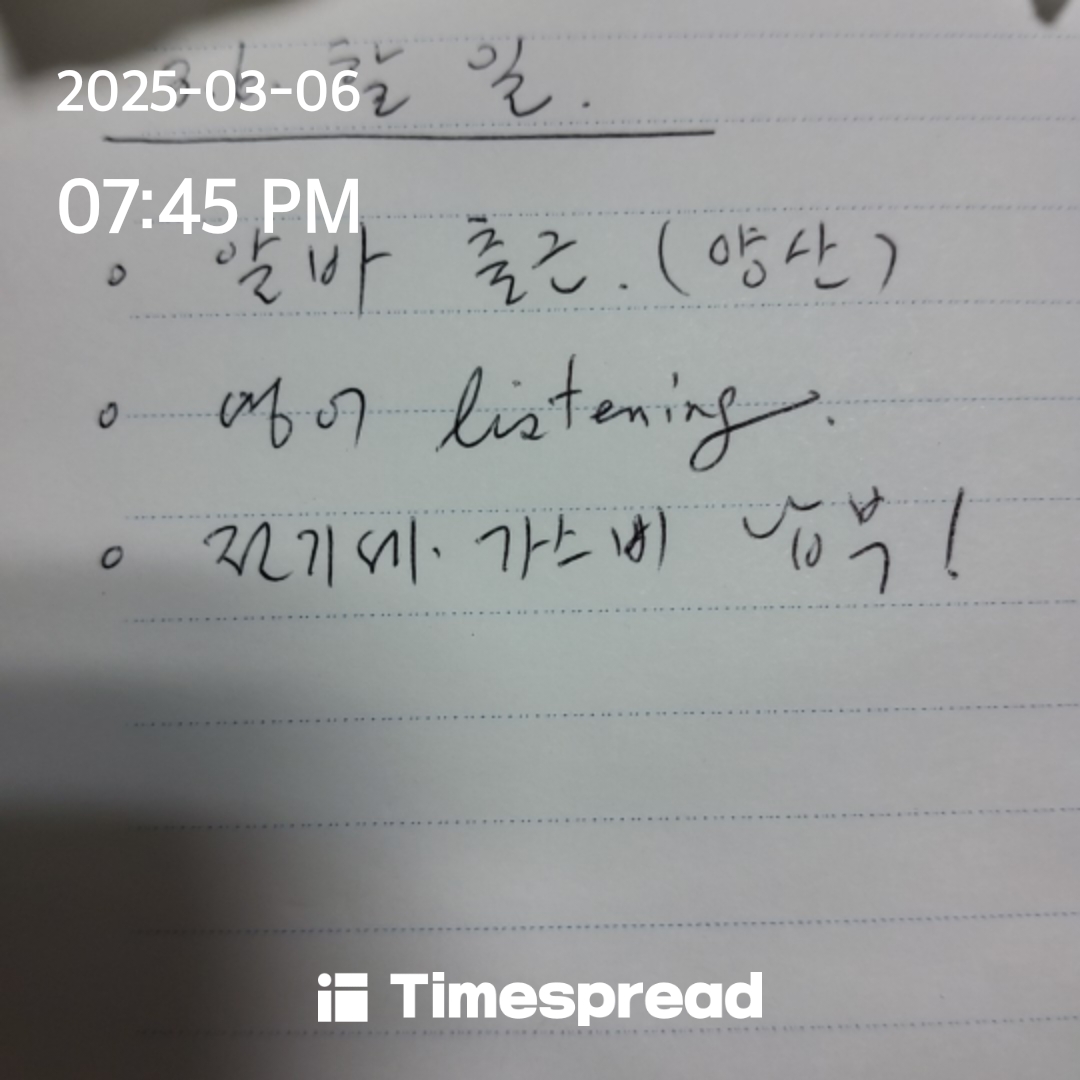 2025-03-06
3.6. 할 일.
07:45 PM
o 알바 출근. (양산)
o 영어 listening.
o 전기세. 가스비 납부!
Timespread